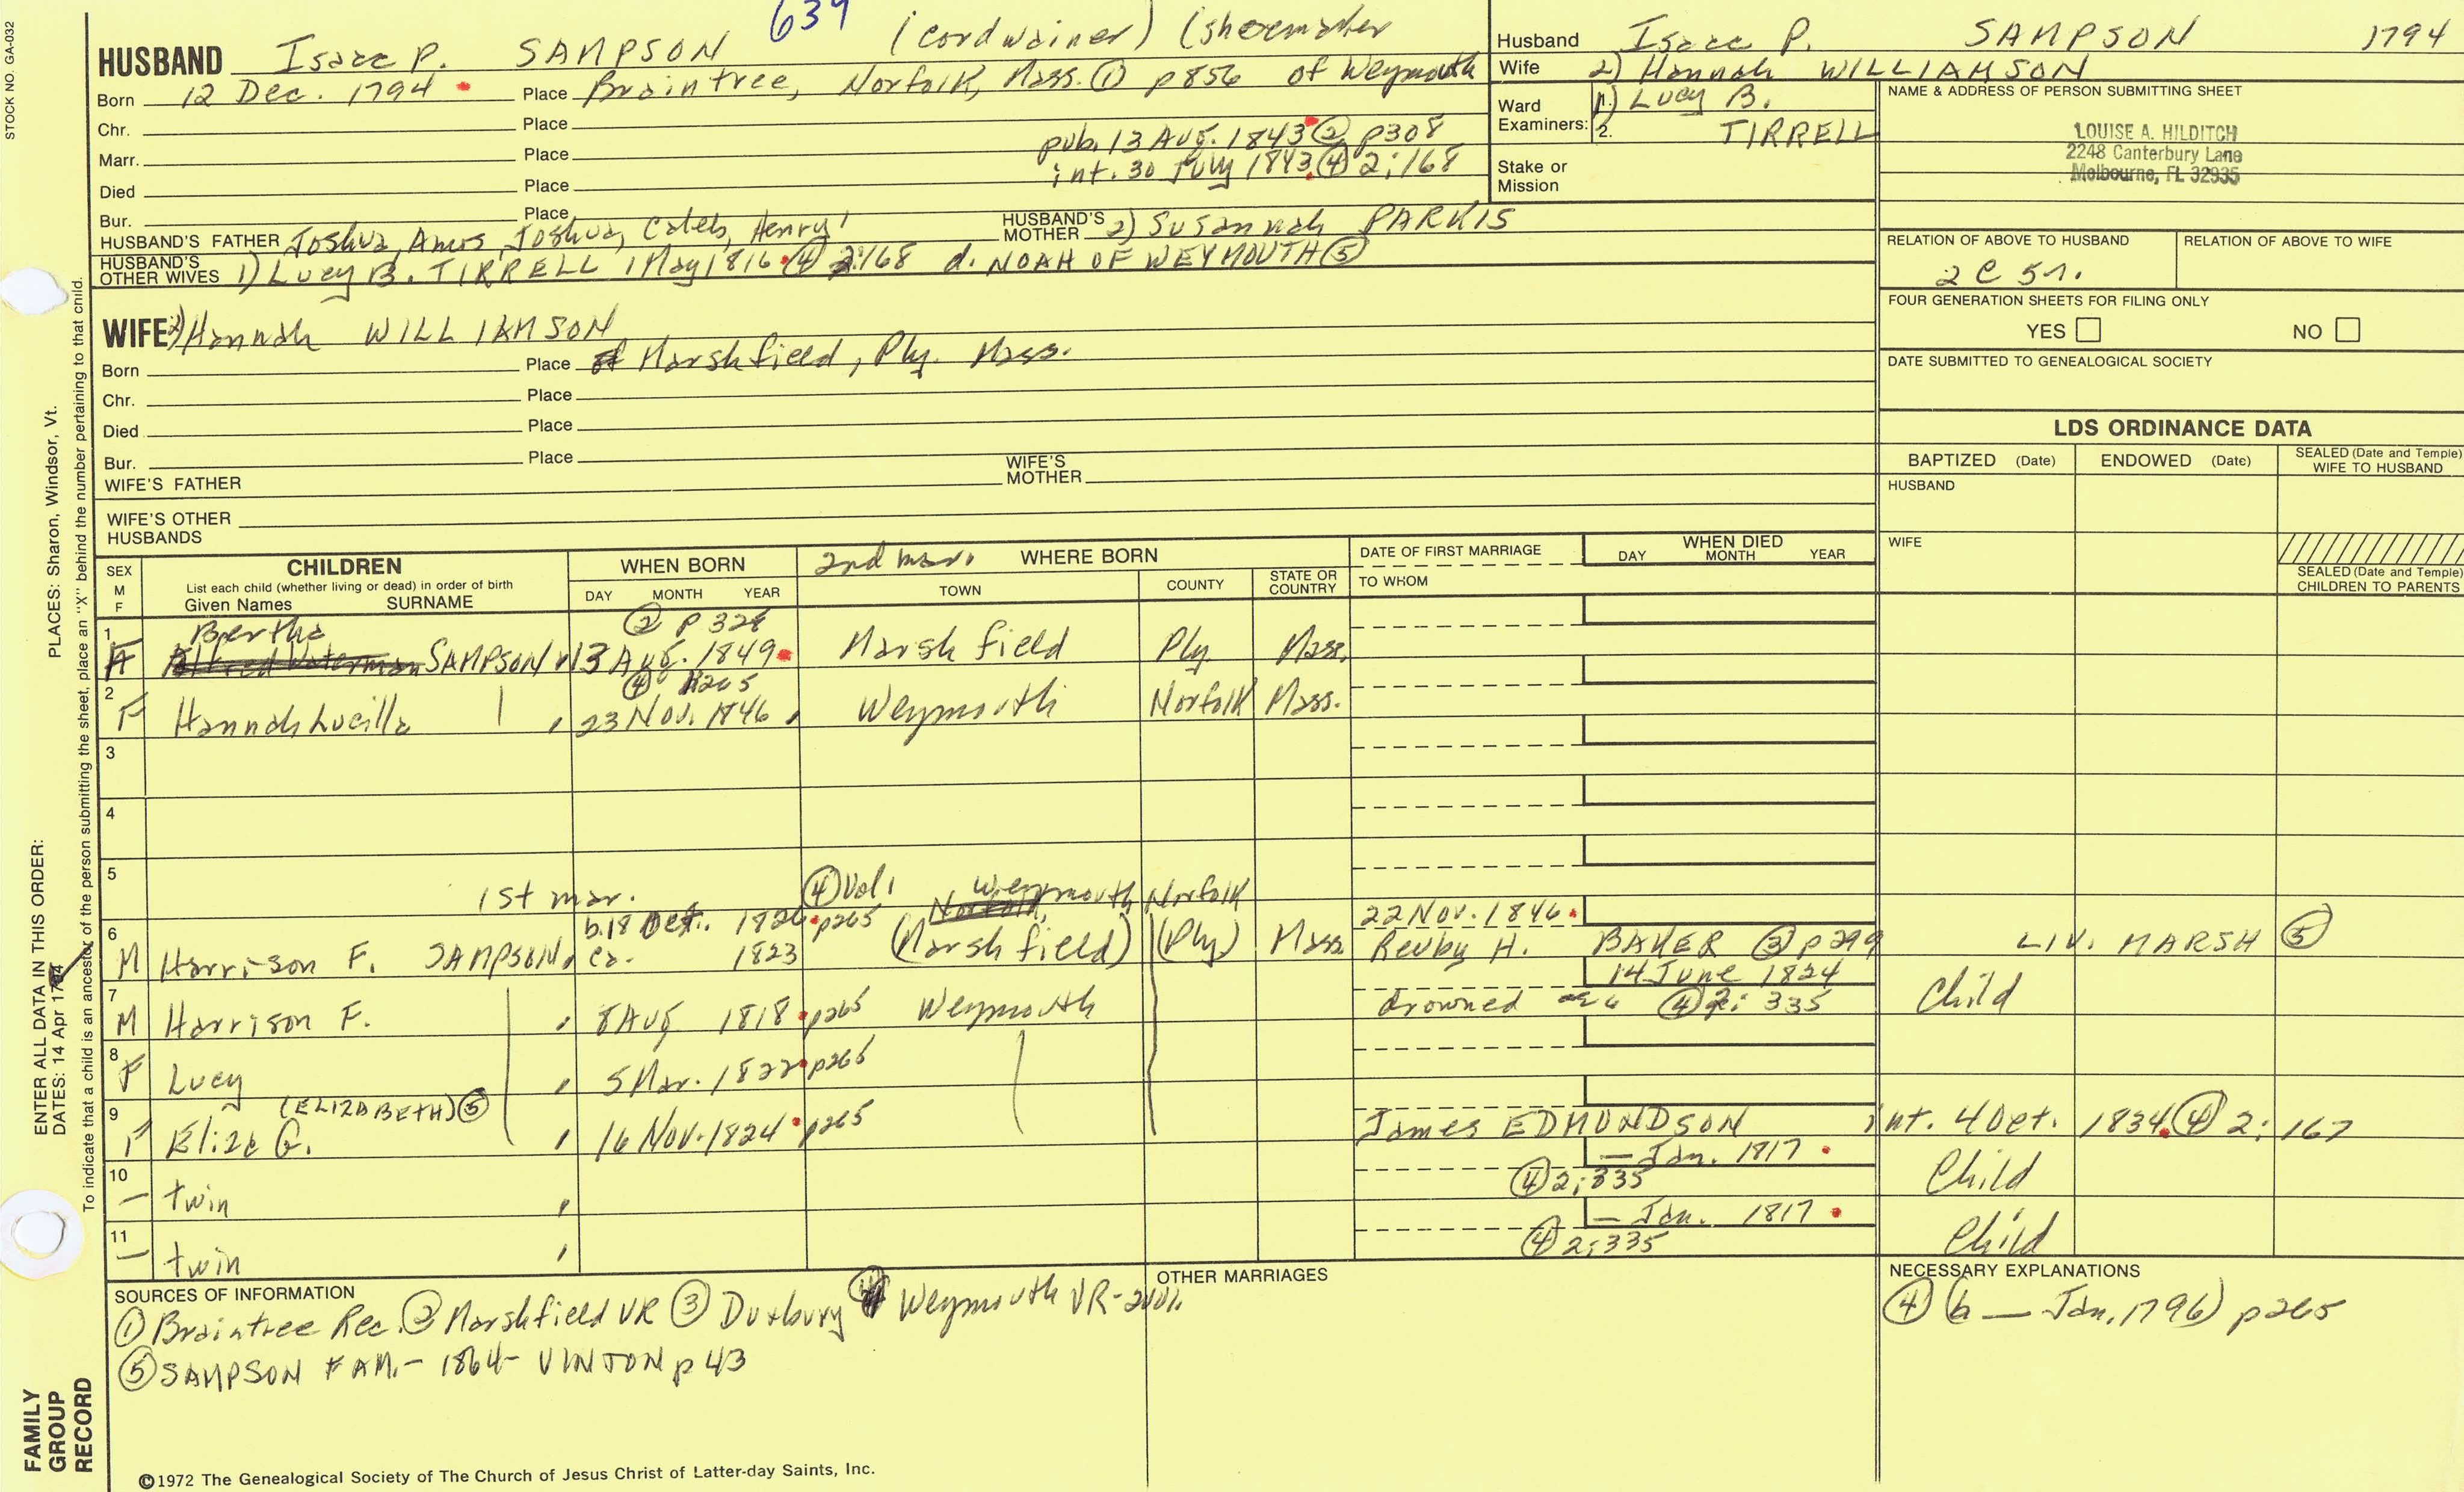 STOCK NO. GA-032
639
(cordwainer) (shoemaker
HUSBAND Isaac P. SAMPSON
Born 12 Dec. 1794 Place Braintree, Norfolk, Mass. ① p856 of Weymouth
Chr. Place
pub. 13 Aug. 1843 ② p308
Marr. Place
int. 30 July 1843 ④ 2:168
Died Place
Bur. Place
HUSBAND'S FATHER Joshua, Amos, Joshua, Caleb, Henry¹ HUSBAND'S MOTHER 2) Susannah PARKIS
HUSBAND'S OTHER WIVES 1) Lucy B. TIRRELL 1 May 1816 ④ 2:168 d. NOAH OF WEYMOUTH ⑤
Husband Isaac P. SAMPSON 1794
Wife 2) Hannah WILLIAMSON
Ward Examiners: 1.) Lucy B.
2. TIRRELL
Stake or Mission
NAME & ADDRESS OF PERSON SUBMITTING SHEET
LOUISE A. HILDITCH
2248 Canterbury Lane
Melbourne, FL 32935
RELATION OF ABOVE TO HUSBAND RELATION OF ABOVE TO WIFE
2 C 5r.
FOUR GENERATION SHEETS FOR FILING ONLY
YES NO
DATE SUBMITTED TO GENEALOGICAL SOCIETY
WIFE 2) Hannah WILLIAMSON
Born Place of Marshfield, Ply. Mass.
Chr. Place
Died Place
Bur. Place
WIFE'S FATHER WIFE'S MOTHER
WIFE'S OTHER HUSBANDS
LDS ORDINANCE DATA
BAPTIZED (Date) ENDOWED (Date) SEALED (Date and Temple) WIFE TO HUSBAND
HUSBAND
WIFE
SEALED (Date and Temple) CHILDREN TO PARENTS
SEX M F
CHILDREN
List each child (whether living or dead) in order of birth
Given Names SURNAME
WHEN BORN
DAY MONTH YEAR
2nd mar. WHERE BORN
TOWN COUNTY STATE OR COUNTRY
DATE OF FIRST MARRIAGE
TO WHOM
WHEN DIED
DAY MONTH YEAR
Bertha ② p 328
1 F Alfred Waterman SAMPSON 13 Aug. 1849 Marshfield Ply. Mass.
④ p265
2 F Hannah Lucilla 23 Nov. 1846 Weymouth Norfolk Mass.
3
4
5
1st mar. ④ Vol 1 Weymouth Norfolk
b. 18 Oct. 1826 p265 Norfolk, 22 Nov. 1846
6 M Harrison F. SAMPSON ca. 1823 (Marshfield) (Ply) Mass Reuby H. BAKER ③ p299 LIV. MARSH ⑤
14 June 1824
7 M Harrison F. 8 Aug 1818 p265 Weymouth drowned ae 6 ④ 2: 335 Child
8 F Lucy 5 Mar. 1822 p265
(ELIZABETH) ⑤
9 F Eliza G. 16 Nov. 1824 p265 James EDMUNDSON int. 4 Oct. 1834 ④ 2: 167
— Jan. 1817
10 — twin ④ 2:335 Child
— Jan. 1817
11 — twin ④ 2:335 Child
SOURCES OF INFORMATION
① Braintree Rec. ② Marshfield VR ③ Duxbury ④ Weymouth VR-2vol.
⑤ SAMPSON FAM.- 1864- VINTON p 43
OTHER MARRIAGES
NECESSARY EXPLANATIONS
④ (b — Jan. 1796) p265
©1972 The Genealogical Society of The Church of Jesus Christ of Latter-day Saints, Inc.
PLACES: Sharon, Windsor, Vt.
ENTER ALL DATA IN THIS ORDER:
DATES: 14 Apr 1794
To indicate that a child is an ancestor of the person submitting the sheet, place an "X" behind the number pertaining to that child.
FAMILY
GROUP
RECORD